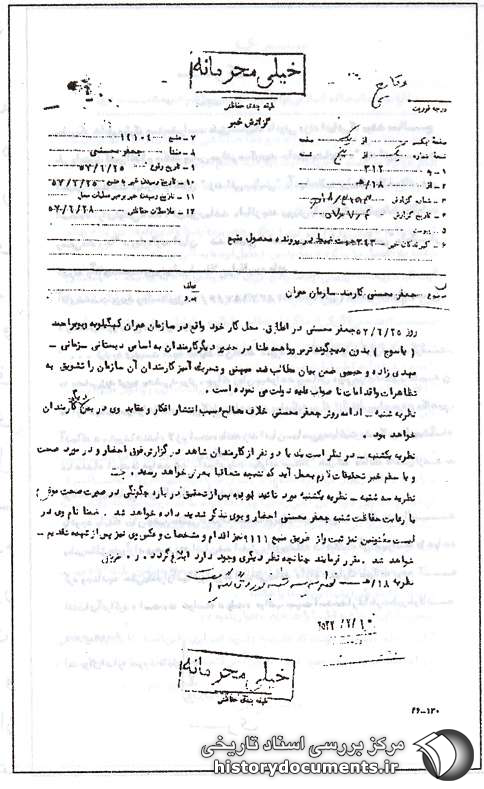 خیلی محرمانه
طبقه بندی حفاظتی
گزارش خبر
درجه فوریت
صفحه یک از یک صفحه
نسخه شماره یک از پنج نسخه
۱ - به ۳۱۲
۲ - از ۱۸/ﻫ
۳ - شماره گزارش
۴ - تاریخ گزارش
۵ - پیوست
۶ - گیرندگان خبر ۳۴۳ جهت ضبط در پرونده محصول منبع
۷ - منبع ۱۴۱۰۴
۸ - منشأ جعفر محسنی
۹ - تاریخ وقوع ۵۷/۶/۲۵
۱۰ - تاریخ رسیدن خبر به منبع ۵۷/۶/۲۵
۱۱ - تاریخ رسیدن خبر به رهبر عملیات محل
۱۲ - ملاحظات حفاظتی ۵۷/۶/۲۸
موضوع : جعفر محسنی کارمند سازمان عمران
روز ۵۷/۶/۲۵ جعفر محسنی در اطاق محل کار خود واقع در سازمان عمران کهگیلویه و بویراحمد
( یاسوج ) بدون هیچگونه ترس و واهمه علنا در حضور دیگر کارمندان به اسامی دبستانی ـ زمانی ـ
مهدی زاده و حبیبی ضمن بیان مطالب ضد میهنی و تحریک آمیز کارمندان آن سازمان را تشویق به
تظاهرات و اقدامات ناصواب علیه دولت می نموده است .
نظریه شنبه ـ ادامه رویه جعفر محسنی خلاف مصالح سبب انتشار افکار و عقاید وی در بین کارمندان
خواهد بود .
نظریه یکشنبه ـ در نظر است یک یا دو نفر از کارمندان شاهد در گزارش فوق احضار و در مورد صحت
و یا سقم خبر تحقیقات لازم بعمل آید که نتیجه متعاقبا بعرض خواهد رسید .
نظریه سه شنبه ـ نظریه یکشنبه مورد تائید بوده پس از تحقیق در باره چگونگی در صورت صحت موضوع
با رعایت حفاظت شنبه جعفر محسنی احضار و بوی تذکر شدید داده خواهد شد . ضمنا نام وی در
لیست مظنونین نیز ثبت و از طریق منبع ۹۱۱۱ نیز اقدام و مشخصات و عکس وی نیز پس از تهیه تقدیم
خواهد شد . مقرر فرمایند چنانچه نظر دیگری وجود دارد ابلاغ گردد .
نظریه ۱۸/ﻫ
خیلی محرمانه
طبقه بندی حفاظتی
۲۶-۱۳۰
مرکز بررسی اسناد تاریخی
historydocuments.ir